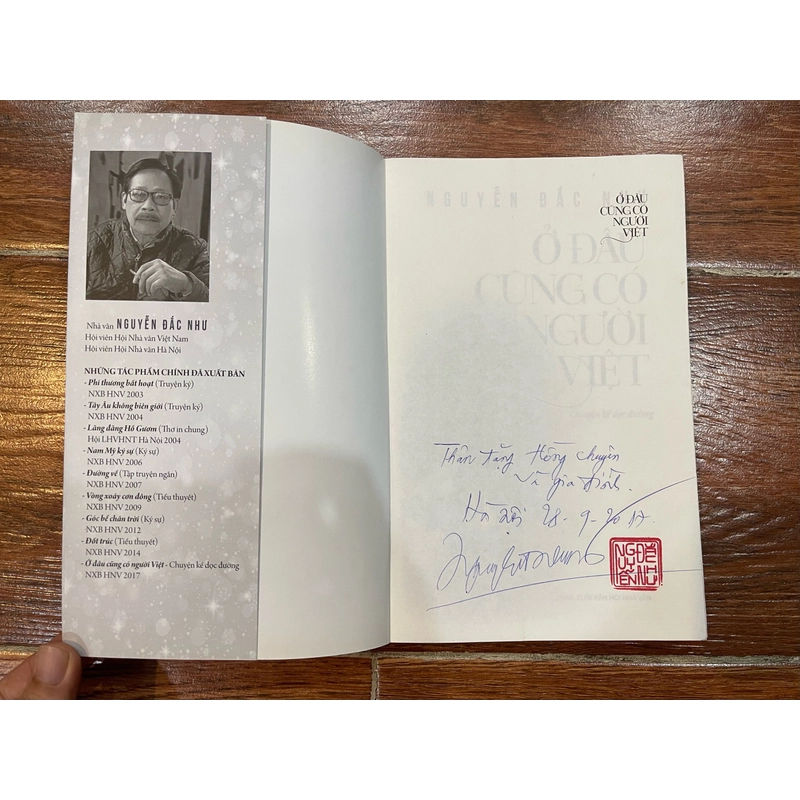 Nhà văn NGUYỄN ĐẮC NHƯ
Hội viên Hội Nhà văn Việt Nam
Hội viên Hội Nhà văn Hà Nội
NHỮNG TÁC PHẨM CHÍNH ĐÃ XUẤT BẢN
- Phi thương bất hoạt (Truyện ký)
NXB HNV 2003
- Tây Âu không biên giới (Truyện ký)
NXB HNV 2004
- Lãng đãng Hồ Gươm (Thơ in chung)
Hội LHVHNT Hà Nội 2004
- Nam Mỹ ký sự (Ký sự)
NXB HNV 2006
- Đường về (Tập truyện ngắn)
NXB HNV 2007
- Vòng xoáy cơn dông (Tiểu thuyết)
NXB HNV 2009
- Góc bể chân trời (Ký sự)
NXB HNV 2012
- Đốt trúc (Tiểu thuyết)
NXB HNV 2014
- Ở đâu cũng có người Việt - Chuyện kể dọc đường
NXB HNV 2017
Ở ĐÂU
CŨNG CÓ
NGƯỜI
VIỆT
NGUYỄN ĐẮC NHƯ
Ở ĐÂU
CŨNG CÓ
NGƯỜI
VIỆT
Thân tặng Hồng Chuyên
và gia đình.
Hà Nội 28-9-2017.
NGUYỄN ĐẮC NHƯ